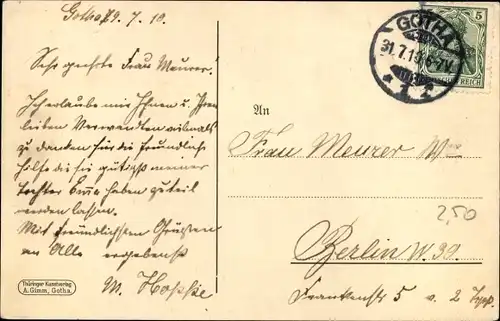 Gotha 29. 7. 10.
Sehr geehrte Frau Meurer!
Ich erlaube mir Ihnen u. Ihren
lieben Verwandten vielmals
zu danken für die freundliche
Hilfe die sie gütigst meiner
Tochter Erna haben zuteil
werden lassen.
Mit freundlichsten Grüssen
an Alle ergebenst
M. Hoppe
Thüringer Kunstverlag
A. Gimm, Gotha.
GOTHA
31.7.10.6-7V.
* 1 *
5
REICH
An
Frau Meurer
2,50
Berlin W. 30.
Frankenstr. 5 v. 2 Trpp.